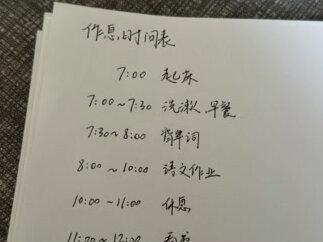 作息时间表
7:00 起床
7:00~7:30 洗漱、早餐
7:30~8:00 背单词
8:00~10:00 语文作业
10:00~11:00 休息
11:00~12:00